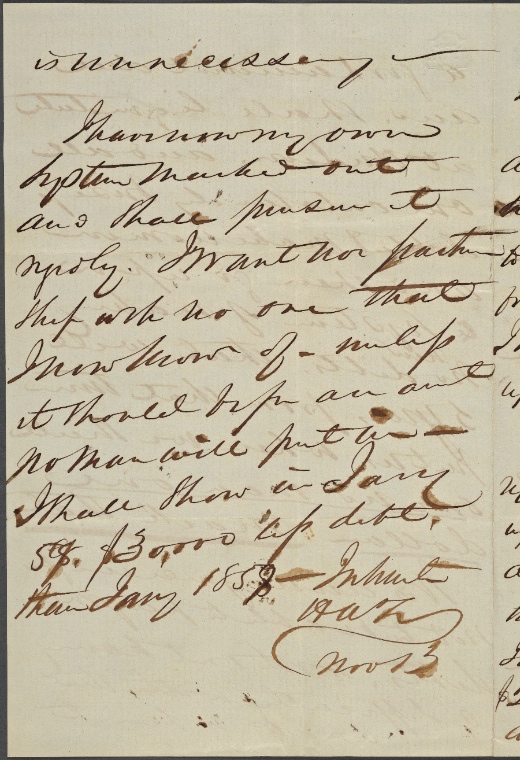 is unnecessary —
I have now my own
System Marked out
and Shall pursue it
rigidly. I want no partner
Ship with no one that
I now Know of - unless
it should be for an amt
no Man will put in —
I Shall Show in Jany
59. $30,000 less debt,
than Jany 1858 — In haste
Nov 13